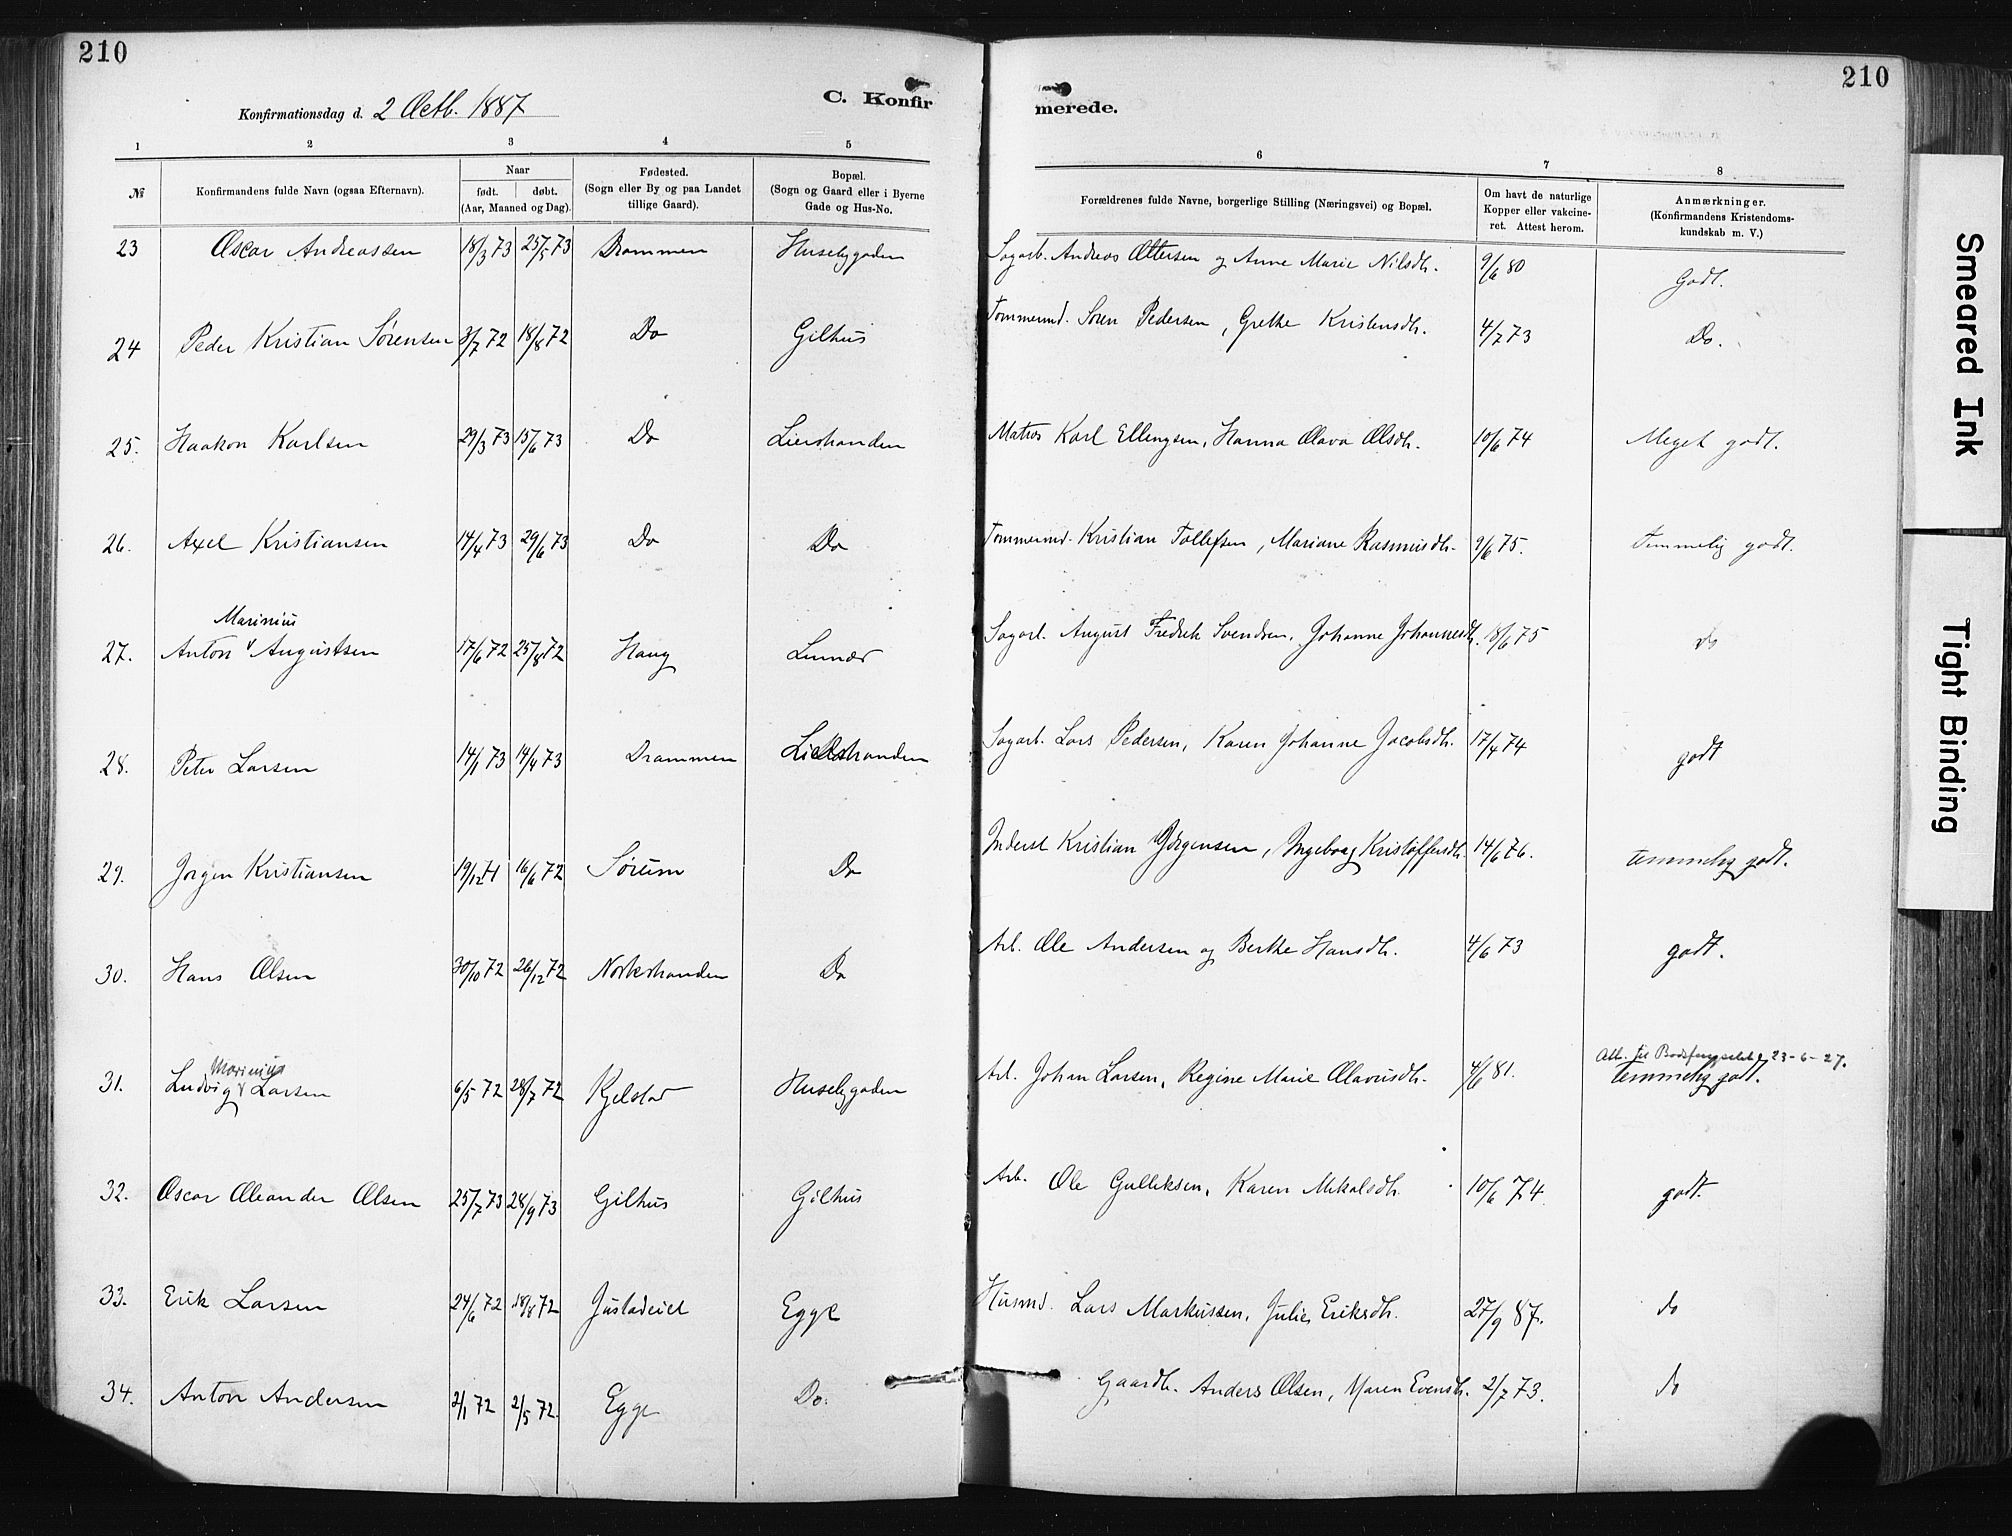 210
210
Konfirmationsdag d. 2 Octb. 1887
C. Konfir
merede.
1 2 3 4 5 6 7 8
№ Konfirmandens fulde Navn (ogsaa Efternavn). Naar født. døbt. (Aar, Maaned og Dag). Fødested. (Sogn eller By og paa Landet tillige Gaard). Bopæl. (Sogn og Gaard eller i Byerne Gade og Hus-No. Forældrenes fulde Navne, borgerlige Stilling (Næringsvei) og Bopæl. Om havt de naturlige Kopper eller vakcineret. Attest herom. Anmærkninger. (Konfirmandens Kristendomskundskab m. V.)
23 Oscar Andreassen 18/3 73 25/5 73 Drammen Husebygaden Sagarb. Andreas Ottersen og Anne Marie Nilsdtr. 9/6 80 Godt.
24 Peder Kristian Sørensen 3/7 72 18/8 72 Do Gilhus Tømmermd. Søren Pedersen, Grethe Kristensdtr. 4/7 73 Do.
25. Haakon Karlsen 29/3 73 15/6 73 Do Lierstranden Matros Karl Ellingsen, Hanna Olava Olsdtr. 10/6 74 Meget godt.
26. Axel Kristiansen 14/4 73 29/6 73 Do Do Tømmermd. Kristian Tollefsen, Mariane Rasmusdtr. 9/6 75. Temmelig godt.
Marinius
27. Anton Augustsen 17/6 72 25/8 72 Haug Lunner Sagarb. August Fredrik Svendsen, Johanne Johannesdtr. 18/6 75 do
28. Peter Larsen 14/1 73 14/4 73 Drammen Lierstranden Sagarb. Lars Pedersen, Karen Johanne Jacobsdtr. 17/4 74 godt
29. Jørgen Kristiansen 19/12 71 16/6 72 Sørum Do Inderst Kristian Jørgensen, Ingeborg Kristoffersdtr. 14/6 76. temmelig godt.
30. Hans Olsen 30/10 72 26/12 72 Norkstranden Do Arb. Ole Andersen og Berthe Hansdtr. 4/6 73 godt.
Marinius
Att. til Bodsfængselet 23-6-27.
31. Ludvig Larsen 6/5 72 28/7 72 Kjelstad Husebygaden Arb. Johan Larsen, Regine Marie Olavusdtr. 4/6 81. temmelig godt.
32. Oscar Oleander Olsen 25/7 73 28/9 73 Gilhus Gilhus Arb. Ole Gulliksen, Karen Mikalsdtr. 10/6 74 godt.
33. Erik Larsen 24/6 72 18/8 72 Justadeiet Egge Husmd. Lars Markussen, Julie Eriksdtr. 27/9 87. do
34. Anton Andersen 2/1 72 2/5 72. Egge Do. Gaardb. Anders Olsen, Maren Evensdtr. 2/7 73. do
Smeared Ink
Tight Binding